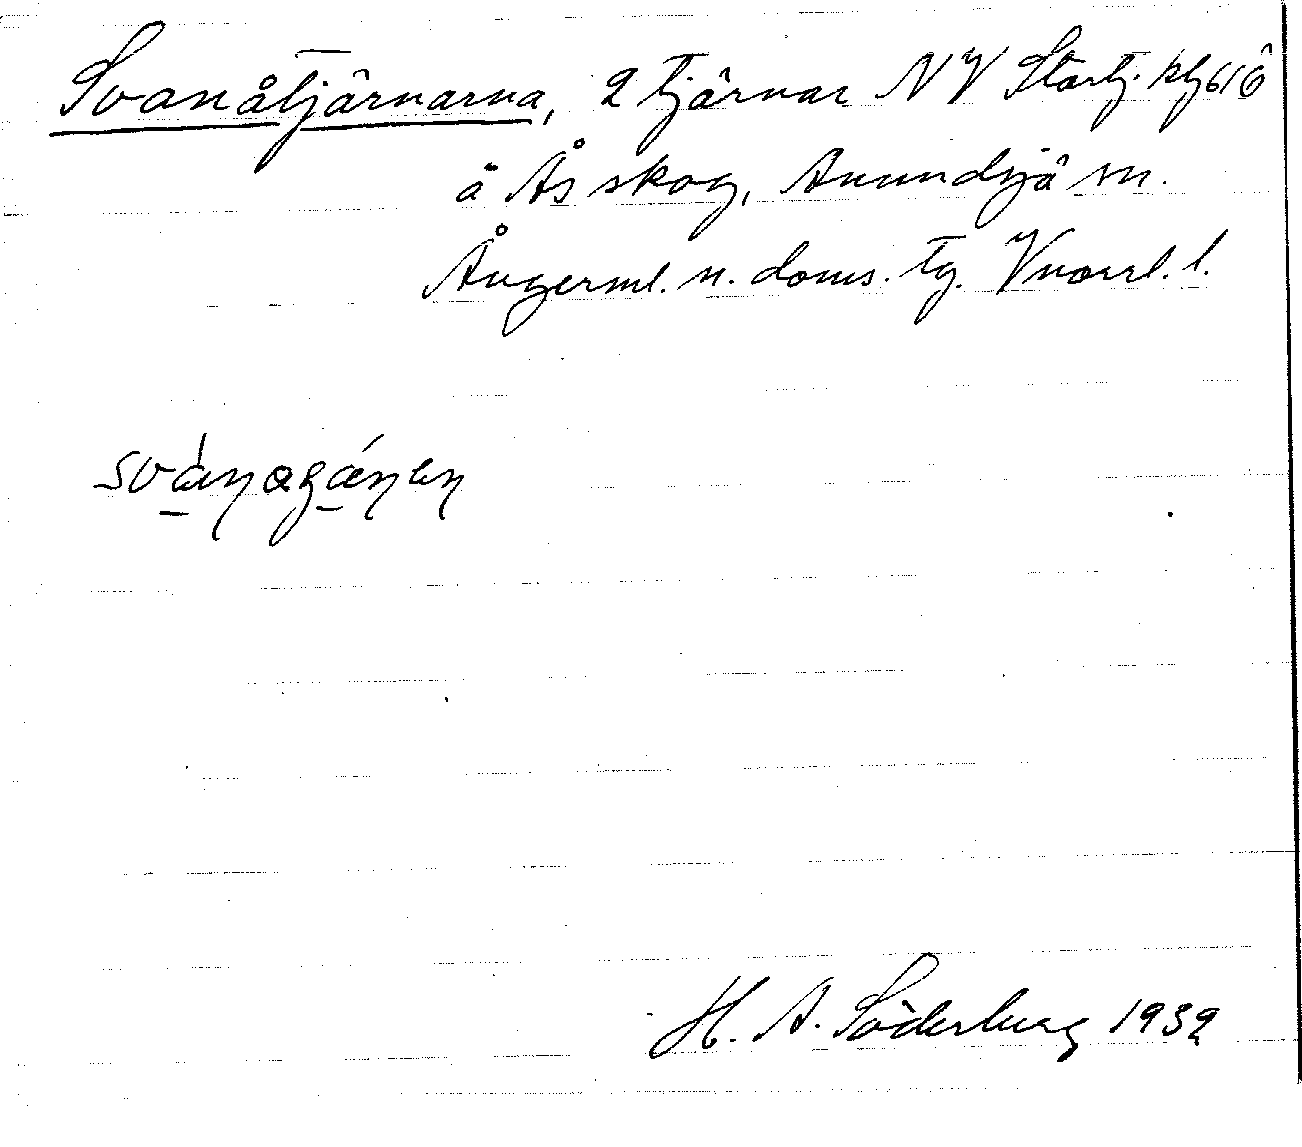 Svanåtjärnarna, 2 tjärnar NV Stortj. kbl 616
å Ås skog, Anundsjö sn.
Ångerml. n. doms. tg. Vnorrl. l.
H. A. Söderberg 1932